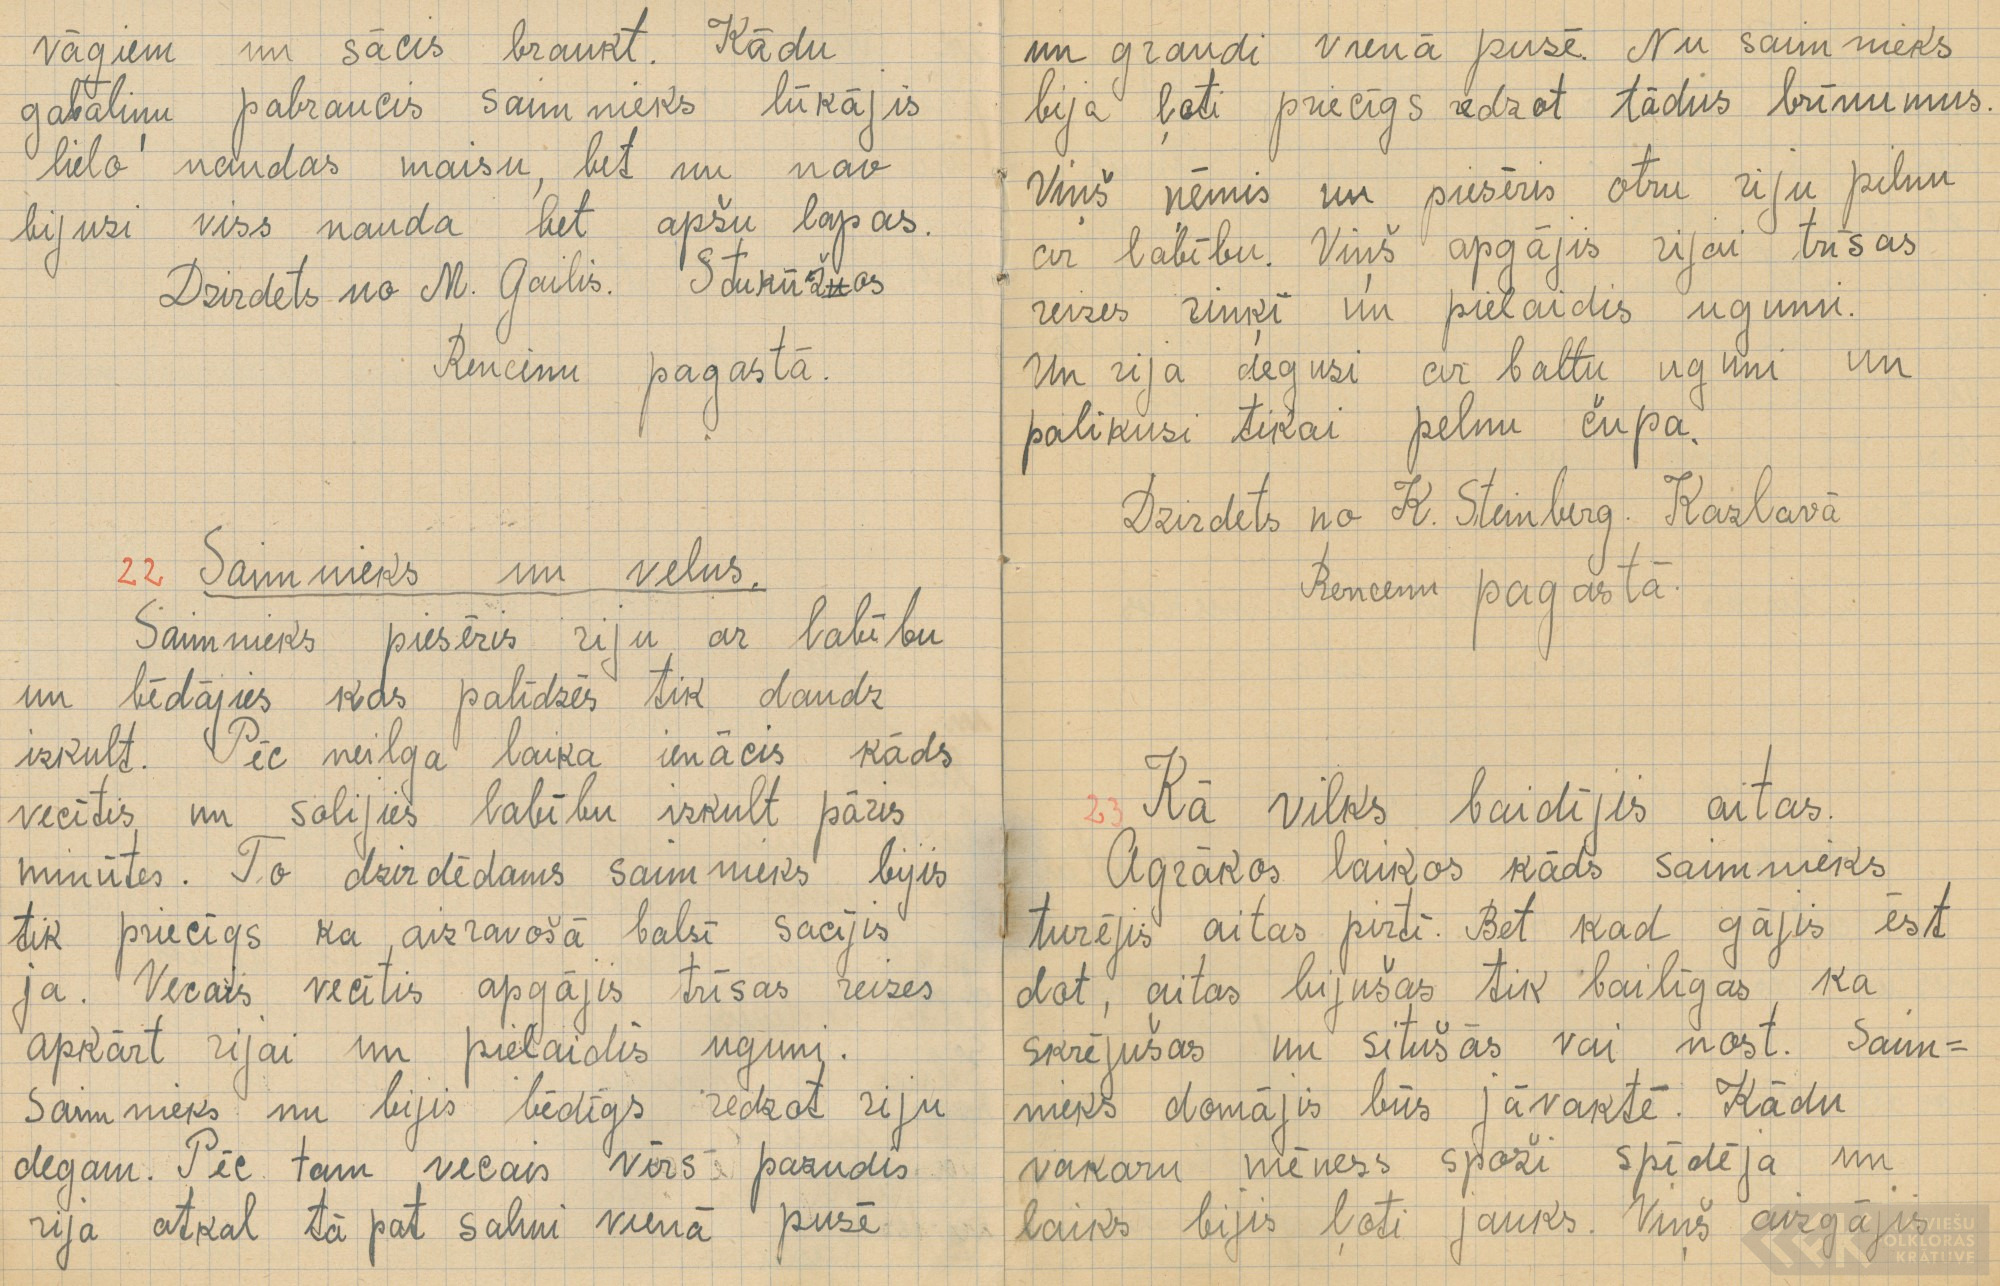 vāgiem un sācis braukt. Kādu
gabalinu pabraucis saimnieks lūkājis
lielo naudas maisu, bet nu nav
bijusi viss nauda bet apšu lapas.
Dzirdēts no M. Gailis.
Rencēnu pagastā.
22 Saimnieks un velns.
Saimnieks piesēris riju ar labību
un bēdājies kas palīdzēs tik daudz
izkult. Pēc neilga laika ienācis kāds
vecītis, un solijies labību izkult pāris
minūtes. To dzirdēdams saimnieks bijis
tik priecīgs ka aizravošā balsī sacījis
ja. Vecais vecītis apgājis trīsas reizes
apkārt rijai un pielaidis uguni.
Saimnieks nu bijis bēdīgs redzot riju
degam. Pēc tam vecais vīrs pazudis
rija atkal tā pat salmi vienā pusē
un graudi vienā pusē. Nu saimnieks
bija ļoti priecīgs redzot tādus brīnumus.
Viņš ņēmis un piesēris otru riju pilnu
ar labību. Viņš apgājis rijai trīsas
reizes riņķī un pielaidis uguni.
Un rija degusi ar baltu uguni un
palikusi tikai pelnu čupa.
Dzirdēts no K. Steinberg. Kazlavā
Rencenu pagastā.
23 Kā vilks baidījis aitas.
Agrākos laikos kāds saimnieks
turējis aitas pirtī. Bet kad gājis ēst
dot, aitas bijušas tik bailīgas, ka
skrējušas un situšās vai nost. Saim=
nieks domājis būs jāvaktē. Kādu
vakaru mēness spoži spīdēja un
laiks bijis ļoti jauks. Viņš aizgājis
LATVIEŠU
FOLKLORAS
KRĀTUVE